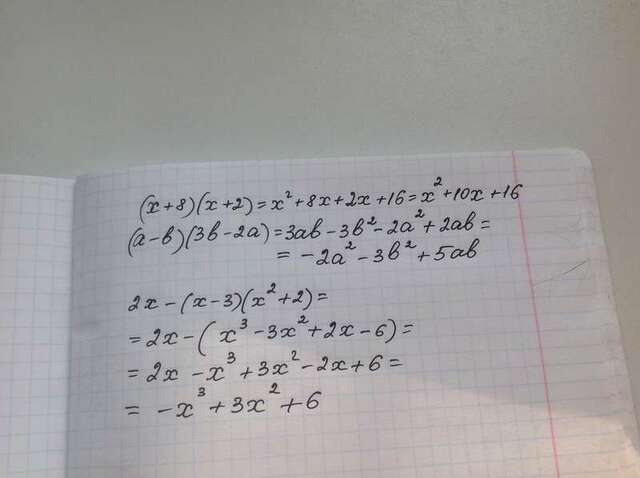 (x+8)(x+2)=x²+8x+2x+16=x²+10x+16
(a-b)(3b-2a)=3ab-3b²-2a²+2ab=
= -2a²-3b²+5ab
2x-(x-3)(x²+2)=
=2x-(x³-3x²+2x-6)=
=2x-x³+3x²-2x+6=
= -x³+3x²+6